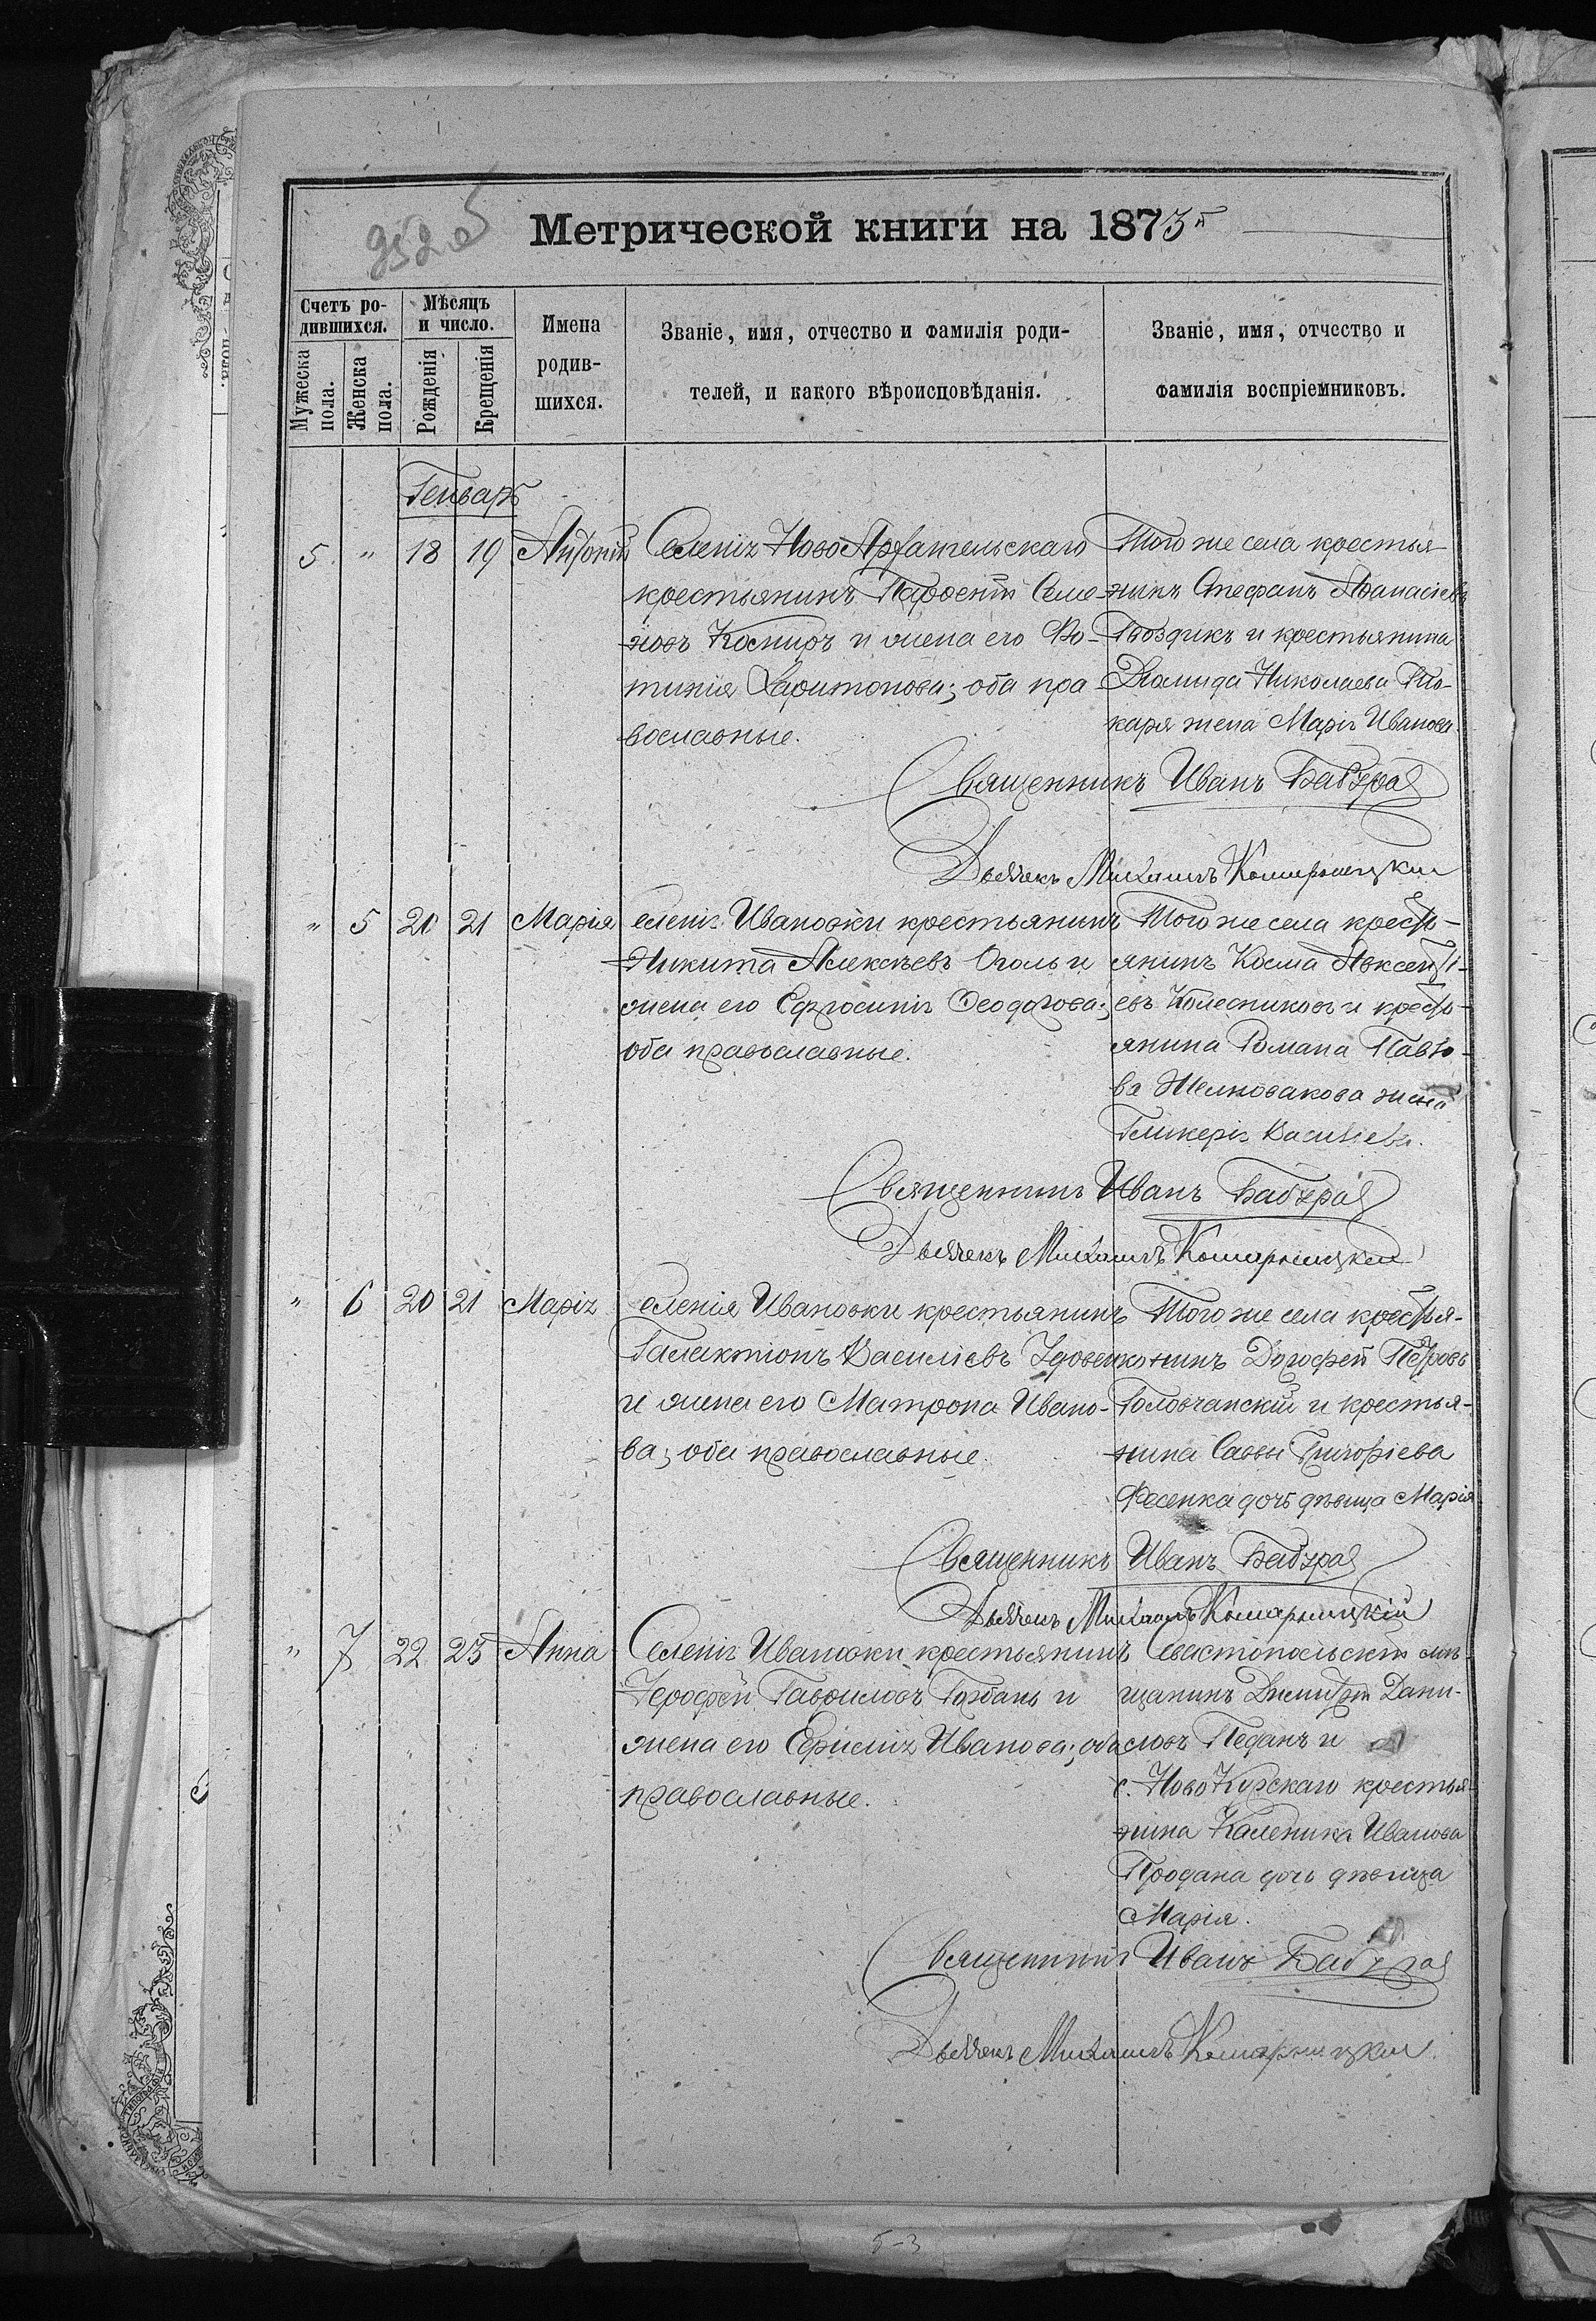 Метрической книги на 1873й
Счетъ ро-
дившихся.
Мужеска пола.
Женска пола.
Мѣсяцъ
и число.
Рожденія
Крещенія
Имена
родив-
шихся.
Званіе, имя, отчество и фамилія роди-
телей, и какого вѣроисповѣданія.
Званіе, имя, отчество и
фамилія воспріемниковъ.
Генварь
5 " 18 19 Антоній
Селенія НовоАрхангельскаго
крестьянинъ Парфентій Семе-
новъ Косниръ и жена его Фо-
тинія Харитонова; оба пра-
вославные.
Того же села крестья-
нинъ Стефанъ Афанасіевъ
Гвоздикъ и крестьянина
Діомида Николаева То-
каря жена Марія Иванова.
Священникъ Иванъ Бабура
Дьячекъ Михаилъ Комарницкій
" 5 20 21 Марія
еленія Ивановки крестьянинъ
Никита Алексѣевъ Оголь и
жена его Ефросинія Ѳеодорова;
оба православные.
Того же села кресть-
янинъ Косма Авксенті-
евъ Колесниковъ и кресть-
янина Романа Павло-
ва Желновакова жена
Гликерія Василіева.
Священникъ Иванъ Бабура
Дьячекъ Михаилъ Комарницкій
" 6 20 21 Марія
еленія Ивановки крестьянинъ
Галактіонъ Василіевъ Удовенко
и жена его Матрона Ивано-
ва; оба православные.
Того же села крестья-
нинъ Дорофей Петровъ
Головчанскій и крестья-
нина Саввы Григоріева
Фесенка дочь дѣвица Марія
Священникъ Иванъ Бабура
Дьячекъ Михаилъ Комарницкій
" 7 22 23 Анна
Селенія Ивановки крестьянинъ
Іерофей Гавриловъ Горбань и
жена его Ефимія Иванова; оба
православные.
Севастопольскій мѣ-
щанинъ Димитрій Дани-
ловъ Педанъ и
с. НовоКурскаго крестья-
нина Каленика Иванова
Продана дочь дѣвица
Марія.
Священникъ Иванъ Бабура
Дьячекъ Михаилъ Комарницкій
5-3